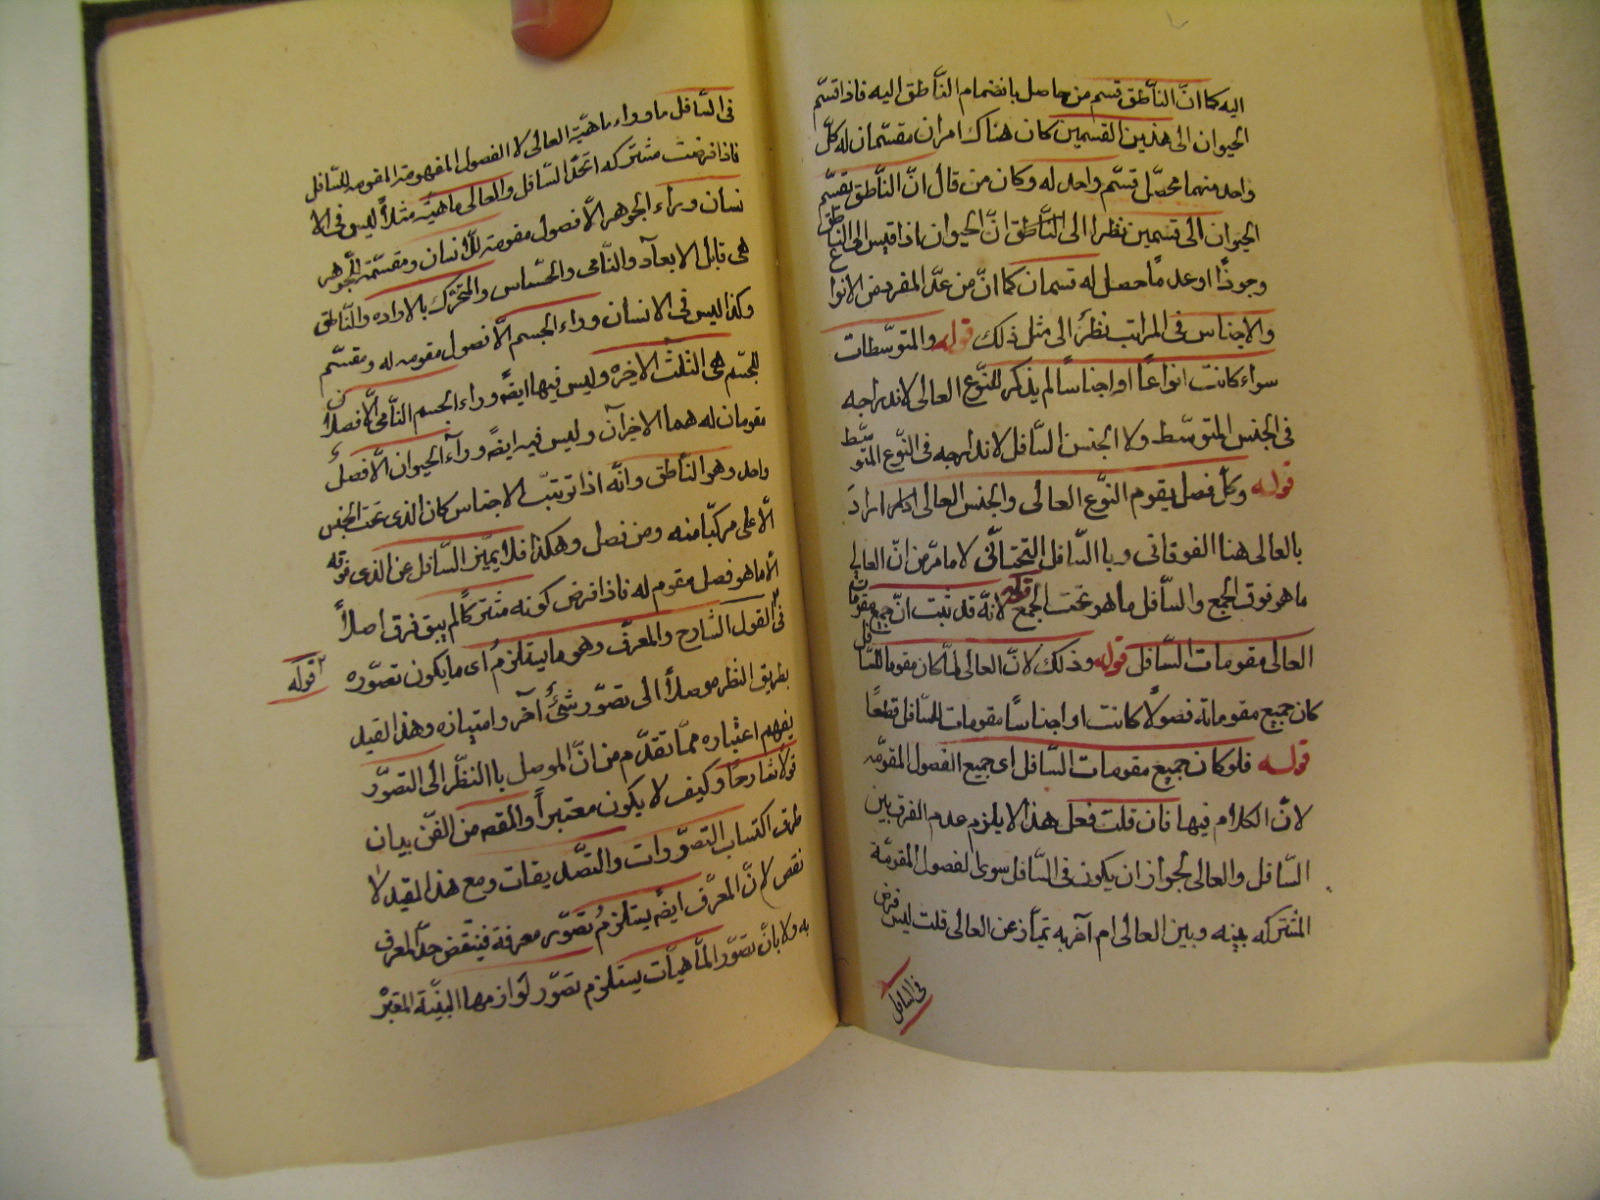 اليه كما انّ النّاطق قسم من حاصل بانضمام النّاطق اليه فاذا قسّم
الحيوان الى هذين القسمين كان هناك امران مقسّمان له كلّ
واحد منهما محصّل قسّم واحد له وكان من قال انّ النّاطق يقسّم
الحيوان الى قسمين نظرا الى النّاطق انّ الحيوان اذا قيس الى النّاطق
وجودًا او عدمًا حصل له قسمان كما انّ من عدّ المفرد من الانواع
والاجناس فى المراتب نظرًا الى مثل ذلك قوله والمتوسّطات
سواء كانت انواعًا او اجناسًا لم يذكر للنّوع العالى لاندراجه
فى الجنس المتوسّط ولا الجنس السّافل لاندراجه فى النّوع المتوسّط
قوله وكلّ فصل يقوم النّوع العالى والجنس العالى اذ المراد
بالعالى هنا الفوقانى وبا السّافل التحتانى لا مامرّ من انّ العالى
ما هو فوق الجمع والسّافل ما هو تحت الجمع قوله لانّه قد ثبت انّ جميع مقومات
العالى مقومات السّافل قوله وذلك لانّ العالى لمّا كان مقوما للسّافل
كان جميع مقوماته فصولًا كانت او اجناسًا مقومات للسّافل قطعًا
قوله فلو كان جميع مقومات السّافل اى جميع الفصول المقومّه
لانّ الكلام فيها فان قلت فعل هذا لا يلزم عدم الفرق بين
السّافل والعالى لجواز ان يكون فى السّافل سوى الفصول المقومّة
المشتركه بينه وبين العالى ام آخر به تميّاز عن العالى قلت ليس فرض
فى السافل
فى السّافل ما وراء ماهيّة العالى لا الفصول المفهومة المقومه للسّافل
فاذا فرضت مشتركه اتحدّ السّافل والعالى ماهية مثلاً ليس فى الا
نسان وراء الجوهر الّا فصول مقومة للانسان ومقسّمة للجوهر
هى قابل الابعاد والنّامى والحسّاس والمتحرّك بالاراده والنّاطق
وكذا ليس فى الانسان وراء الجسم الّا فصول مقومه له ومقسّم
للجسّم هى الثلث الاخيره وليس فيها ايضًه وراء الجسم النّامى الّا فصلان
مقومان له هما الاخيرآن وليس فيه ايضًه وراء الحيوان الّا فصلٌ
واحد وهو النّاطق وانّه اذا ترتبّ الاجناس كان الذى تحت الجنس
الّا على مركبّا منه ومن فصل وهكذا فلا يميّز السّافل عن الذى فوقه
الّا ما هو فصل مقوم له فاذا فرض كونه مشتركًا لم يبق فرق اصلاً
فى القول الشارح والمعرّف وهو ما يستلزمُ اى ما يكون تصوّره
قوله
بطريق النّظر موصلاً الى تصوّر شىٔ آخر وامتيازه وهذا القيد
يفهم اعتباره ممّا تقدّم من انّ الموصل باالنظّر الى التصوّر
قولًا شارحًا وكيف لا يكون معتبراً والمقصه من الفّن بيان
طرق اكتساب التصوّرات والتصّديقات ومع هذا القيد لا
نقص لانّ المعرّف ايضًه يستلزمُ تصوّر معرفة فينتقض حدّ المعرف
به ولا بانّ تصوّر الماّهيّات يستلزم تصوّر لوازمها البيّنة المعتبرْ